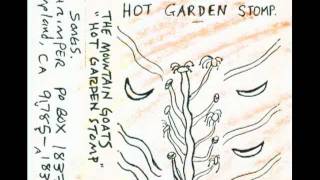 HOT GARDEN STOMP.
THE MOUNTAIN GOATS
"HOT GARDEN STOMP"
Songs.
PO BOX 183
CA 91785-183